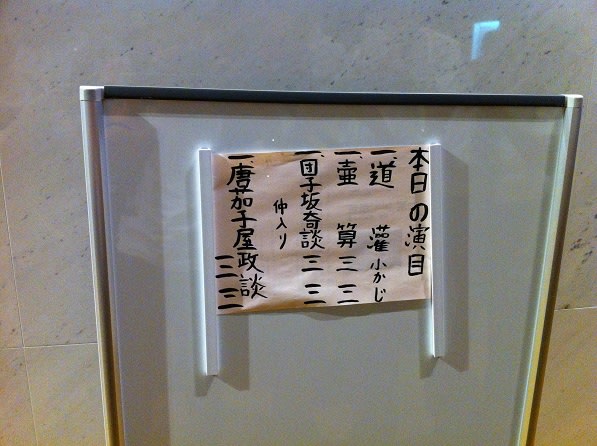 本日の演目
一、道灌 小かじ
一、壷算 三三
一、団子坂奇談 三三
仲入り
一、唐茄子屋政談 三三